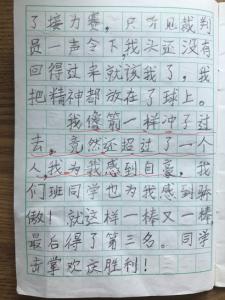 了接力赛，只听见裁判
员一声令下，我头还没有
回得过来就该我了，我
把精神都放在了球上。
我像箭一样冲了过
去，竟然还超过了一个
人，我为我感到自豪，我
们班同学也为我感到骄
傲！就这样一棒又一棒，
最后得了第三名。同学
击掌欢庆胜利！